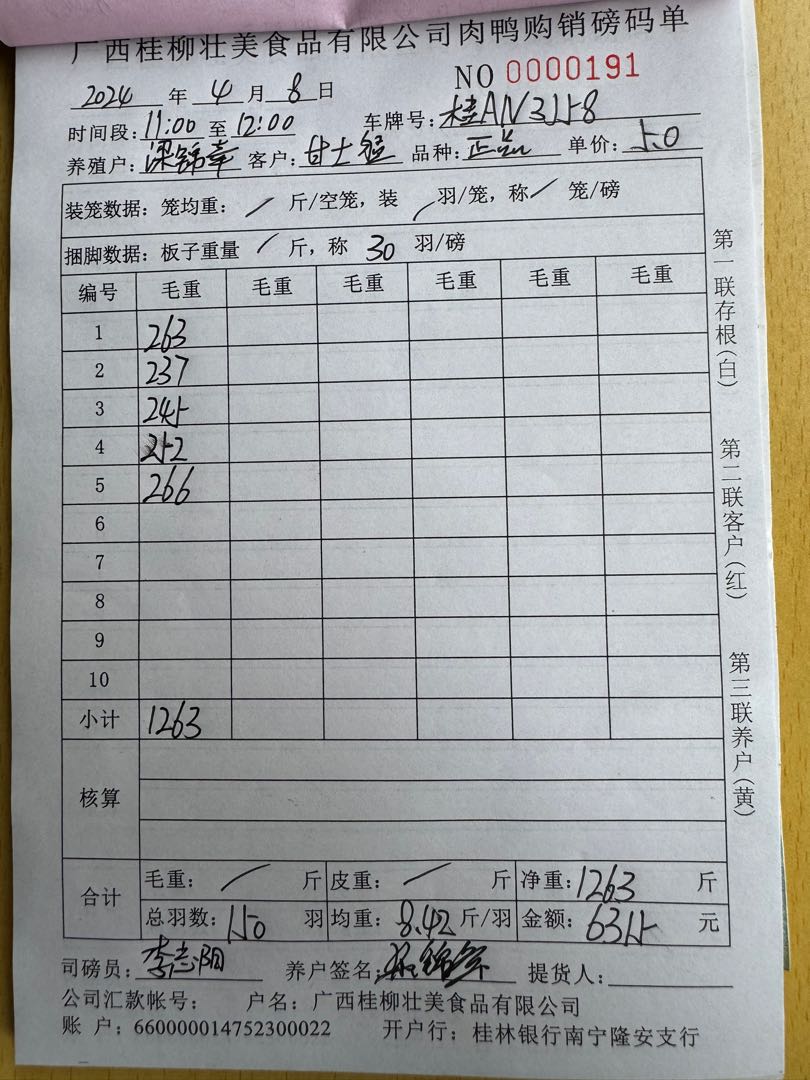 广西桂柳壮美食品有限公司肉鸭购销磅码单
NO 0000191
2024 年 4 月 8 日
时间段: 11:00 至 12:00 车牌号: 桂AN3158
养殖户: 梁锦 客户: 甘士 品种: 正品 单价: 5.0
装笼数据: 笼均重: / 斤/空笼, 装 / 羽/笼, 称 / 笼/磅
捆脚数据: 板子重量 / 斤, 称 30 羽/磅
编号 毛重 毛重 毛重 毛重 毛重 毛重
1 263
2 237
3 245
4 252
5 266
6
7
8
9
10
小计 1263
核算
合计
毛重: / 斤 皮重: / 斤 净重: 1263 斤
总羽数: 150 羽 均重: 8.42 斤/羽 金额: 6315 元
司磅员: 李志阳 养户签名: 锦 提货人:
公司汇款帐号: 户名: 广西桂柳壮美食品有限公司
账 户: 660000014752300022 开户行: 桂林银行南宁隆安支行
第一联存根(白)
第二联客户(红)
第三联养户(黄)